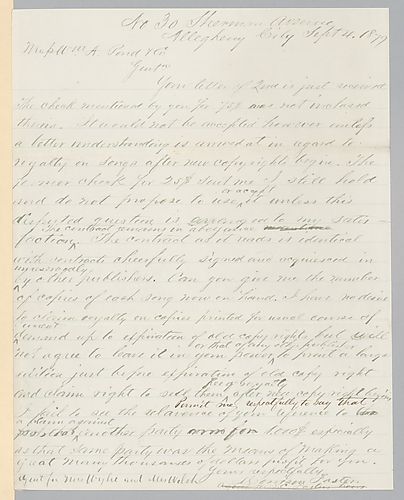 No 30 Sherman Avenue
Allegheny City Sept 4, 1879
Messrs Wm A. Pond & Co
Gentn
Your letter of 2nd is just received
The check mentioned by you for 75$ was not inclosed
therein. It would not be accepted however unless
a better understanding is arrived at in regard to
royalty on songs after new copyrights begin. The
former check for 25$ sent me I still hold
or accept
and do not propose to use it unless this
disputed question is arranged to my satis-
faction. The contract remaining in abeyance
The contract as it reads is identical
with contracts cheerfully signed and acquiesced in
unreservedly
by other publishers. Can you give me the number
of copies of each song now on hand. I have no desire
to claim royalty on copies printed for usual course of
demand up to expiration of old copyright, but will
or that of any other publisher
not agree to leave it in your power to print a large
edition just before expiration of old copyright
free of royalty
and claim right to sell them after new copyright begins
Permit me respectfully to say that
I fail to see the relevance of your reference to
a claim against
another party for 100$ especially
as that same party was the means of making a
great many thousands of dollars profit for you.
Yours respectfully
Morrison Foster
Agent for Mrs Wiley and Mrs Welch